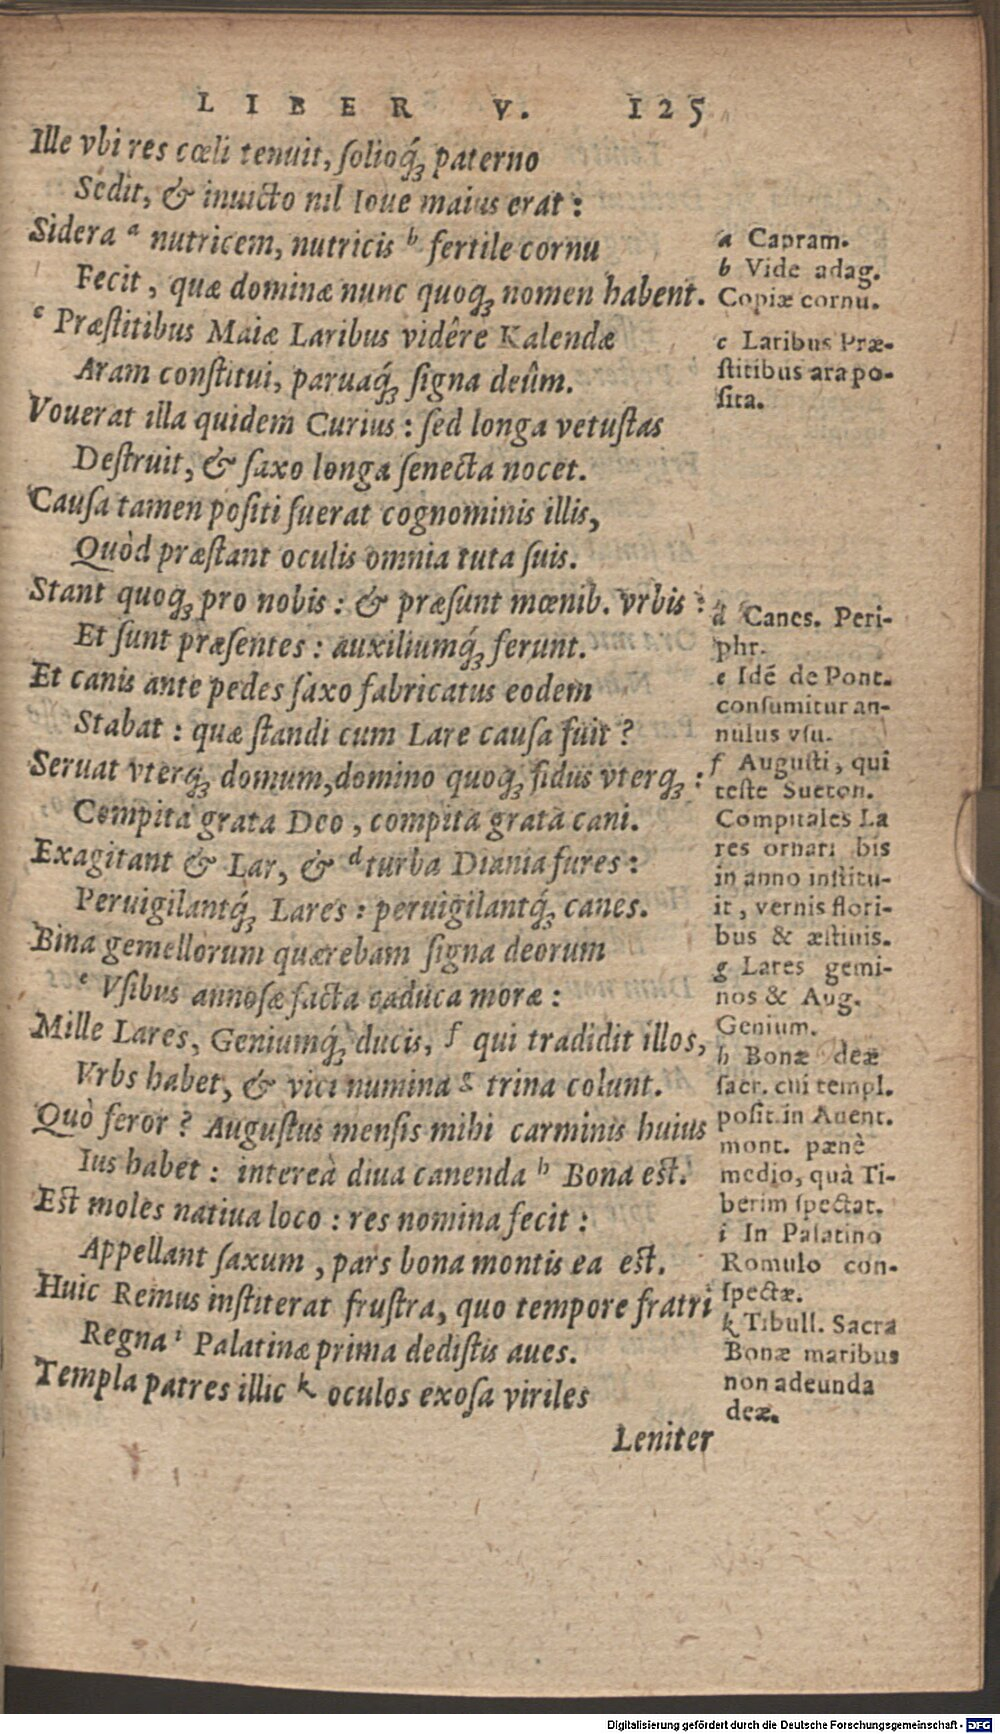 LIBER V. 125
Ille vbi res cœli tenuit, solioq́ꝫ paterno
Sedit, & inuicto nil Ioue maius erat:
Sidera a nutricem, nutricis b fertile cornu
Fecit, quæ dominæ nunc quoqꝫ nomen habent.
c Præstitibus Maiæ Laribus vidêre Kalendæ
Aram constitui, paruaq́ꝫ signa deûm.
Vouerat illa quidem Curius: sed longa vetustas
Destruit, & saxo longa senecta nocet.
Causa tamen positi fuerat cognominis illis,
Quòd præstant oculis omnia tuta suis.
Stant quoqꝫ pro nobis: & præsunt mœnib. vrbis:
Et sunt præsentes: auxiliumq́ꝫ ferunt.
Et canis ante pedes saxo fabricatus eodem
Stabat: quæ standi cum Lare causa fuit?
Seruat vterqꝫ domum, domino quoqꝫ fidus vterqꝫ:
Compita grata Deo, compita grata cani.
Exagitant & Lar, & d turba Diania fures:
Peruigilantq́ꝫ Lares: peruigilantq́ꝫ canes.
Bina gemellorum quærebam signa deorum
e Vsibus annosæ facta caduca moræ:
Mille Lares, Geniumq́ꝫ ducis, f qui tradidit illos,
Vrbs habet, & vici numina g trina colunt.
Quò feror? Augustus mensis mihi carminis huius
Ius habet: intereà diua canenda h Bona est.
Est moles natiua loco: res nomina fecit:
Appellant saxum, pars bona montis ea est.
Huic Remus institerat frustra, quo tempore fratri
Regna i Palatinæ prima dedistis aues.
Templa patres illic k oculos exosa viriles
Leniter
a Capram.
b Vide adag.
Copiæ cornu.
c Laribus Præ-
stitibus ara po-
sita.
d Canes. Peri-
phr.
e Idẽ de Pont.
consumitur an-
nulus vsu.
f Augusti, qui
teste Sueton.
Compitales La
res ornari bis
in anno institu-
it, vernis flori-
bus & æstiuis.
g Lares gemi-
nos & Aug.
Genium.
h Bonæ deæ
sacr. cui templ.
posit. in Auent.
mont. pænè
medio, quà Ti-
berim spectat.
i In Palatino
Romulo con-
spectæ.
k Tibull. Sacra
Bonæ maribus
non adeunda
deæ.
Digitalisierung gefördert durch die Deutsche Forschungsgemeinschaft - DFG